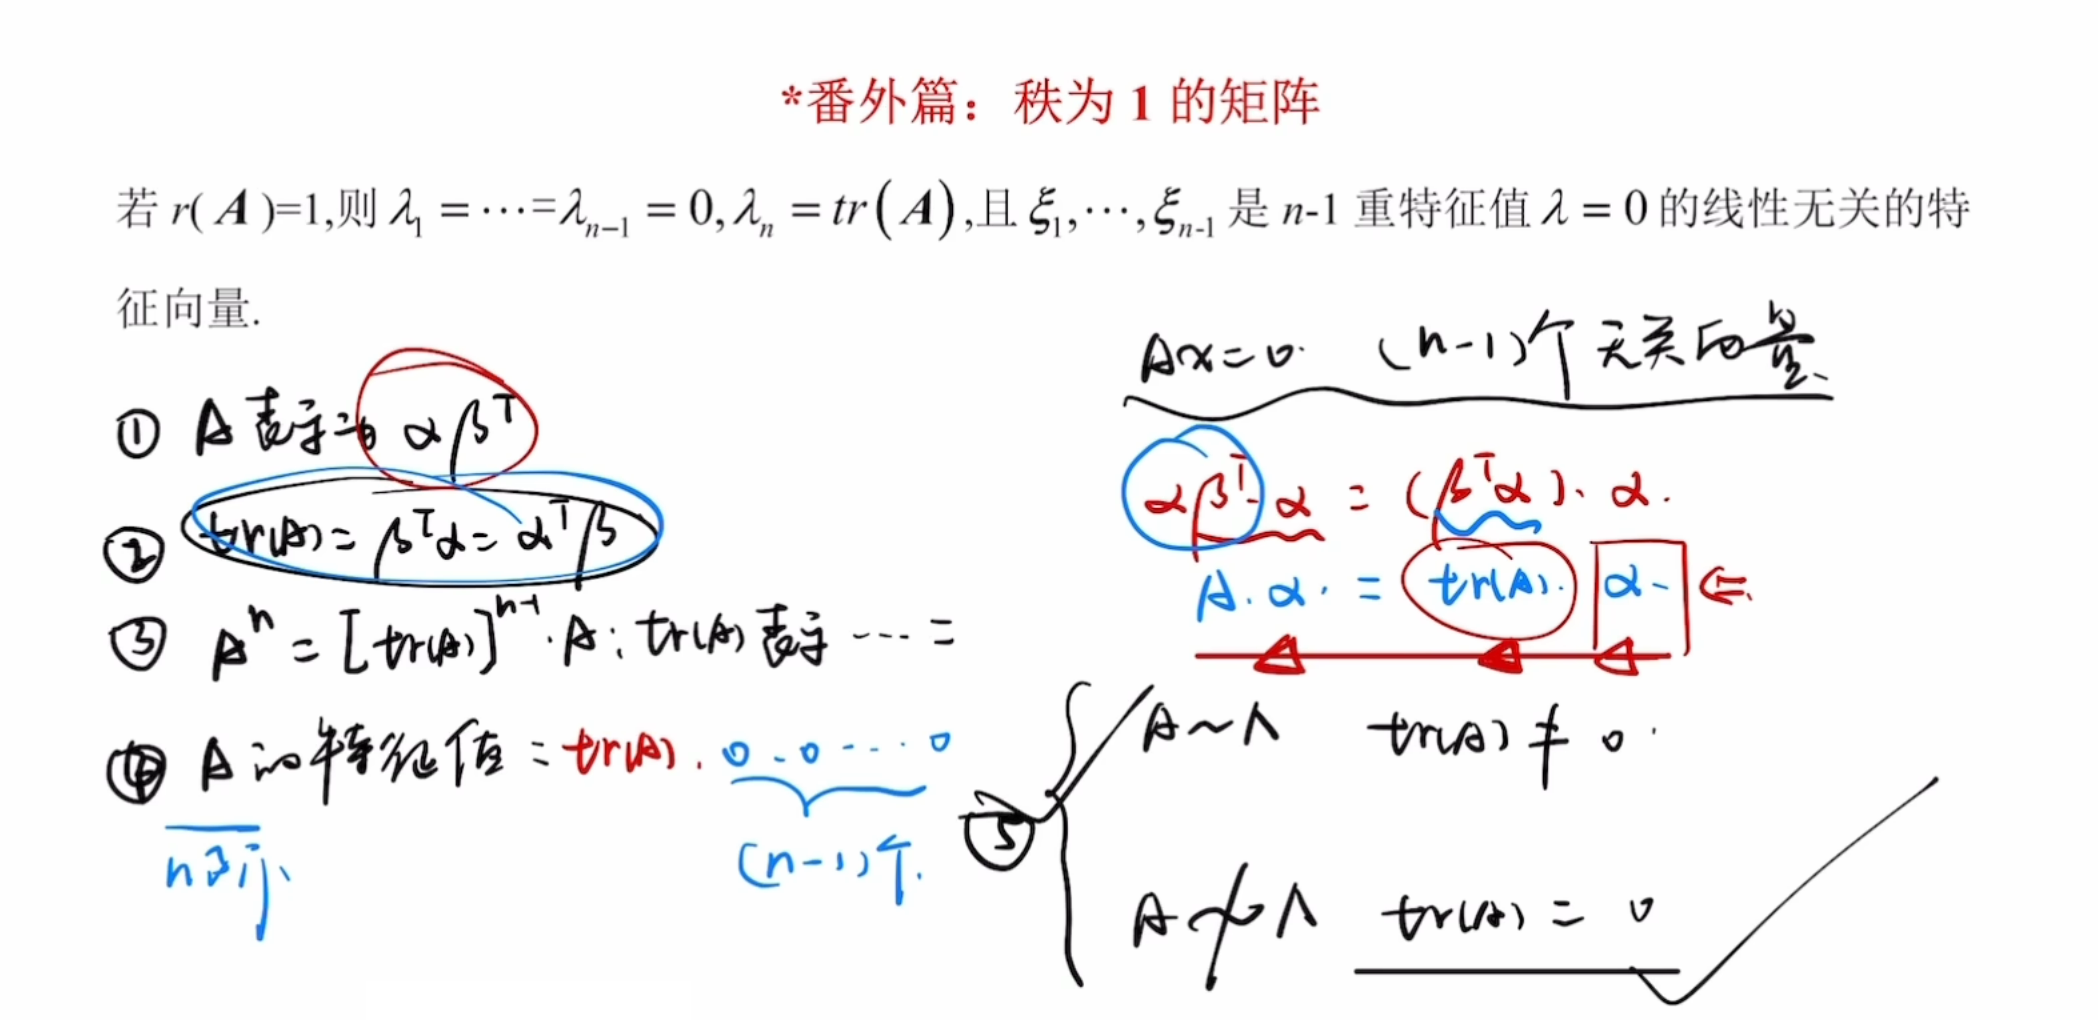 *番外篇：秩为 1 的矩阵
若 r(A)=1,则 λ₁ = ⋯ = λₙ₋₁ = 0, λₙ = tr(A),且 ξ₁,⋯,ξₙ₋₁ 是 n-1 重特征值 λ = 0 的线性无关的特
征向量.
Ax=0. (n-1)个无关向量.
① A表示为 αβᵀ
② tr(A) = βᵀα = αᵀβ
③ Aⁿ = [tr(A)]ⁿ⁻¹·A; tr(A)表示 ⋯ =
④ A的特征值 = tr(A). 0. 0 ⋯ 0
n阶.
(n-1)个.
αβᵀ·α = (βᵀα)·α.
A·α. = tr(A). α. ⇐.
⑤
A∼Λ tr(A) ≠ 0.
A≁Λ tr(A) = 0